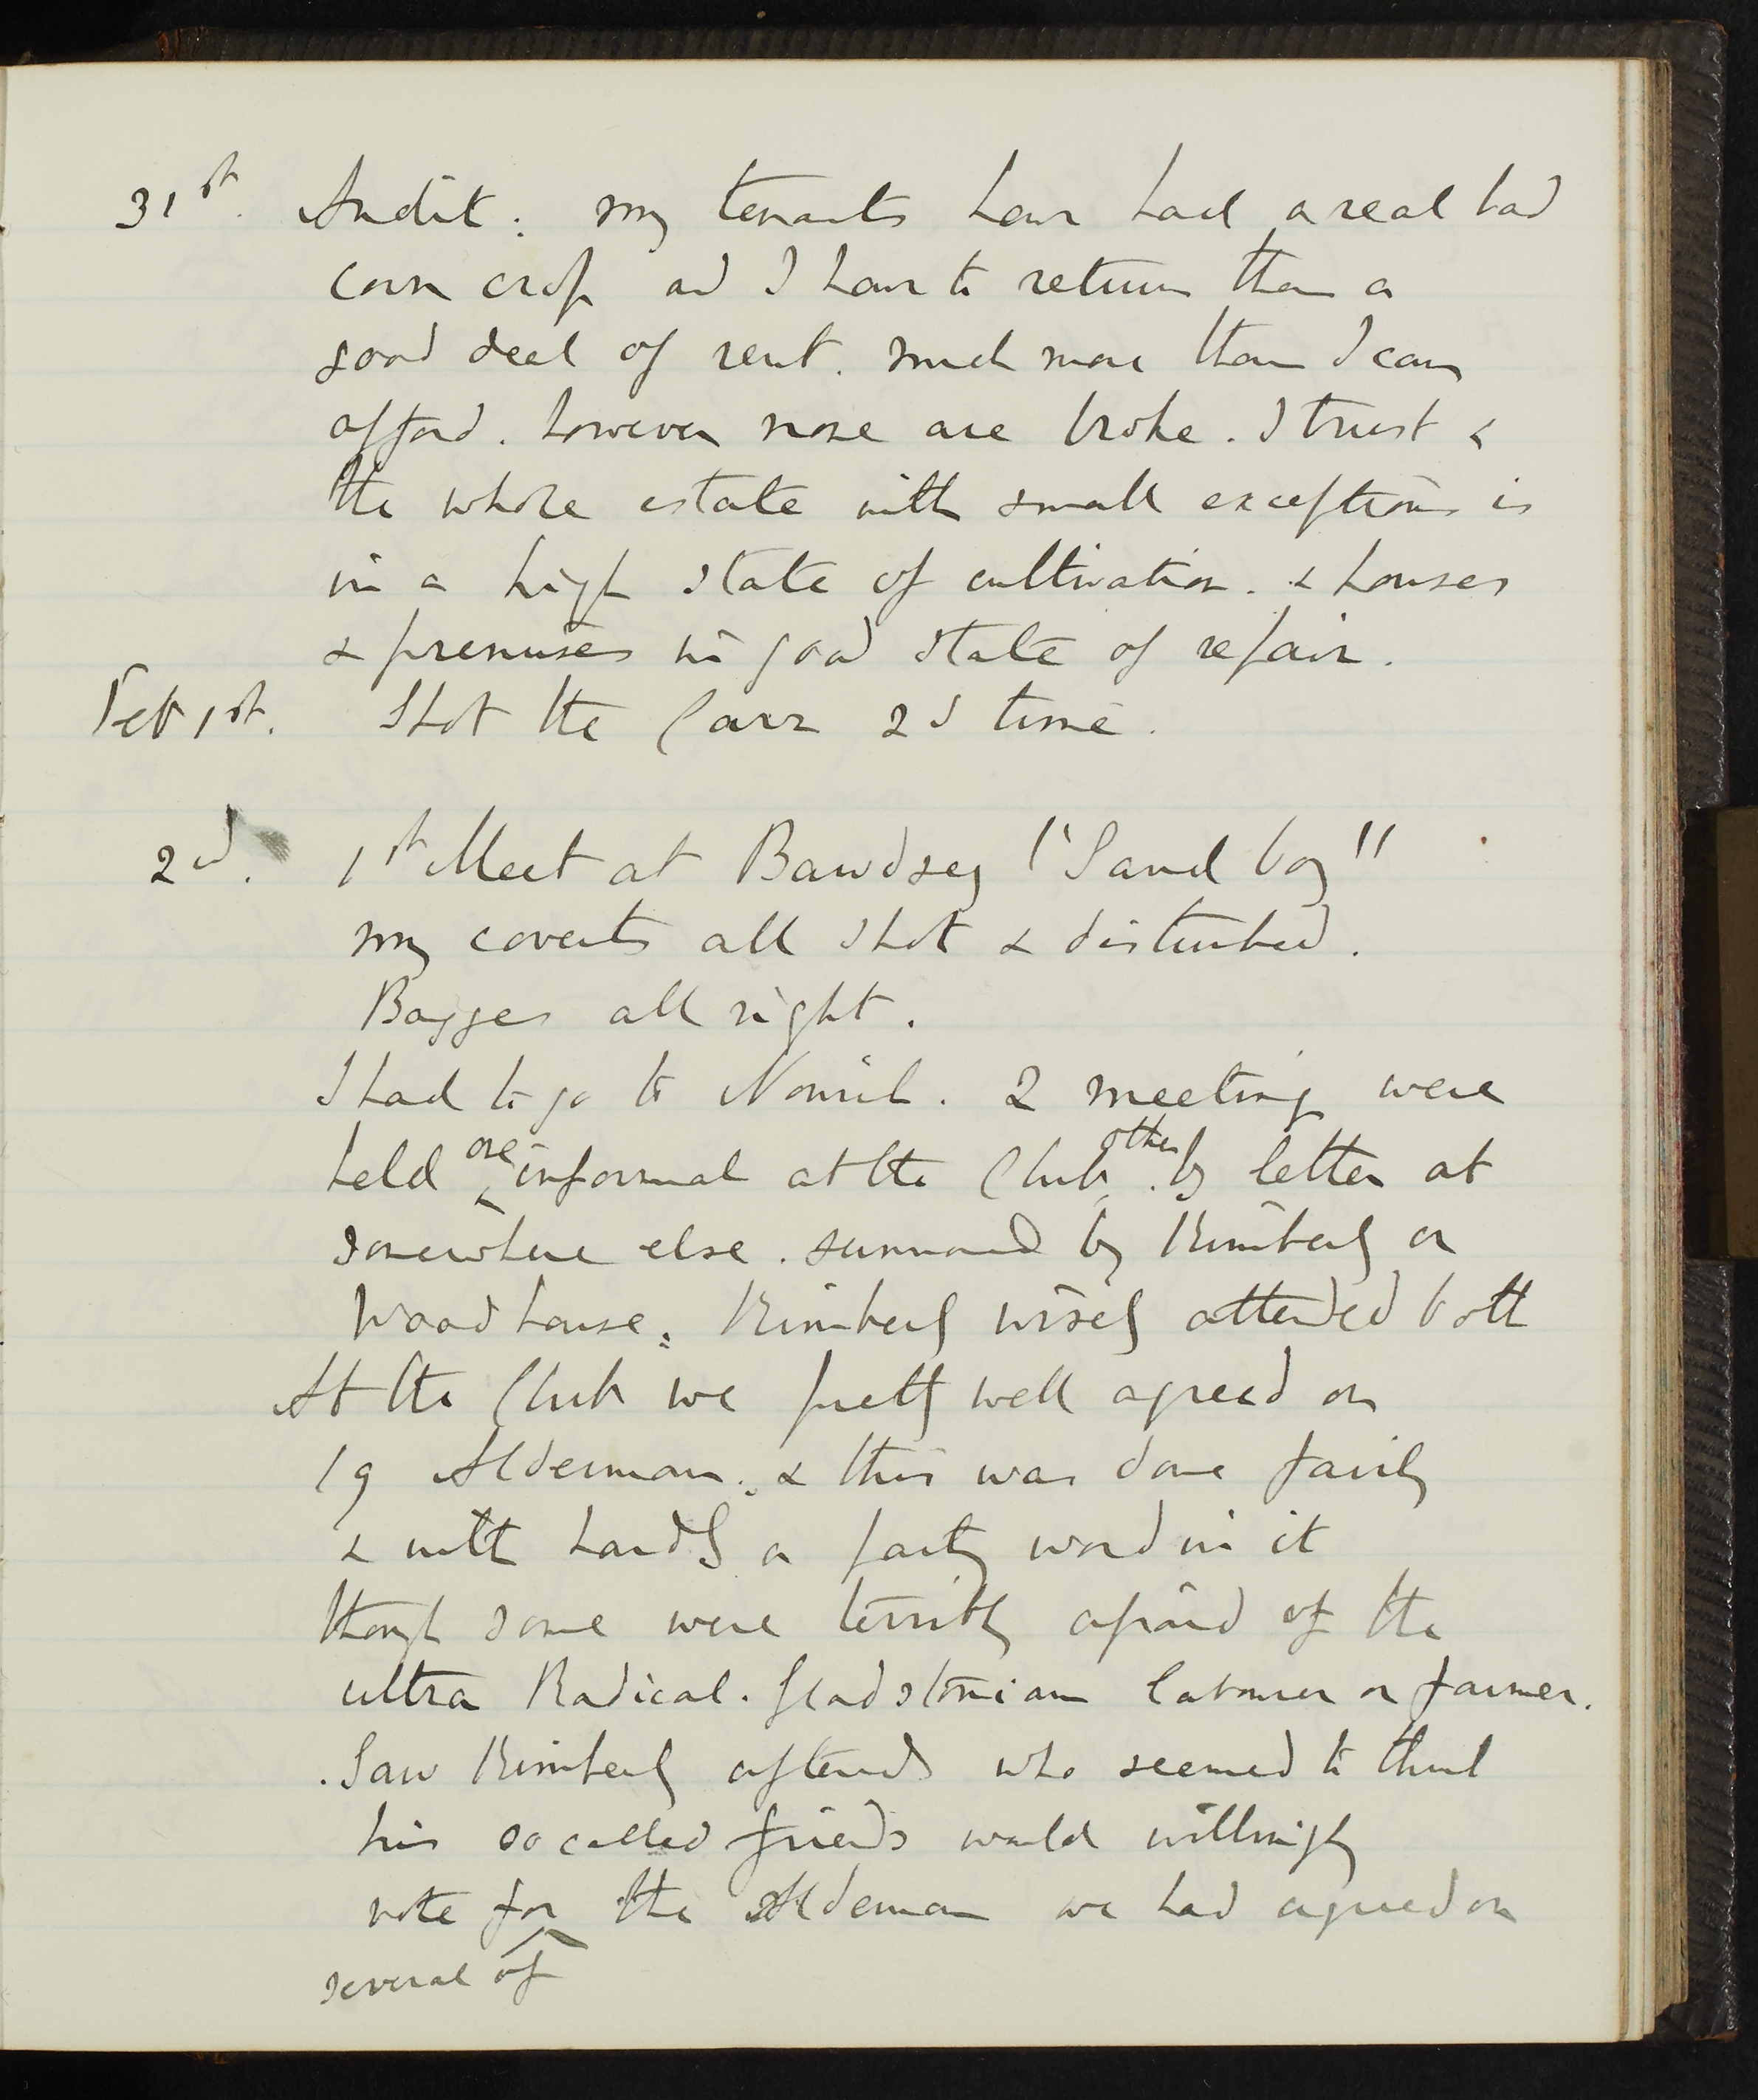 31st. Audit: my tenants have had a real bad
corn crop and I have to return them a
good deal of rent. much more than I can
afford. however none are broke. I trust &
the whole estate with small exceptions is
in a high state of cultivation. & houses
& premises in good state of repair.
Feb 1st. Shot the Carr 2d time.
2d. 1st Meet at Bawdsey "Sand boy"
my coverts all shot & disturbed.
Bagges all right.
I had to go to Norwich. 2 meeting were
held one informal at the Club, other by letter at
somewhere else. summoned by Kimberly or
Woodhouse; Kimberly wisely attended both
At the Club we pretty well agreed on
19 Alderman; & this was done fairly
& with hardly a party word in it
though some were terribly afraid of the
ultra Radical. Gladstonian labourer or farmer.
. Saw Kimberly afterwards who seemed to think
his so called friends would willingly
vote for the Alderman we had agreed on
several of